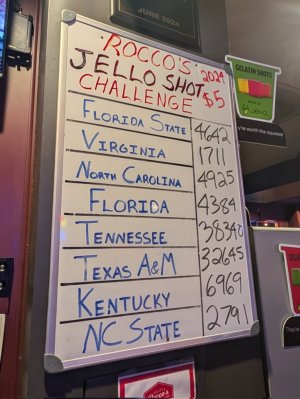 JUNE 2024
ROCCO'S
JELLO SHOT 2024
CHALLENGE $5
FLORIDA STATE 4642
VIRGINIA 1711
NORTH CAROLINA 4925
FLORIDA 4384
TENNESSEE 38340
TEXAS A&M 32645
KENTUCKY 6969
NC STATE 2791
GELATIN SHOTS
JEVO
're worth the squeeze
Rocco's